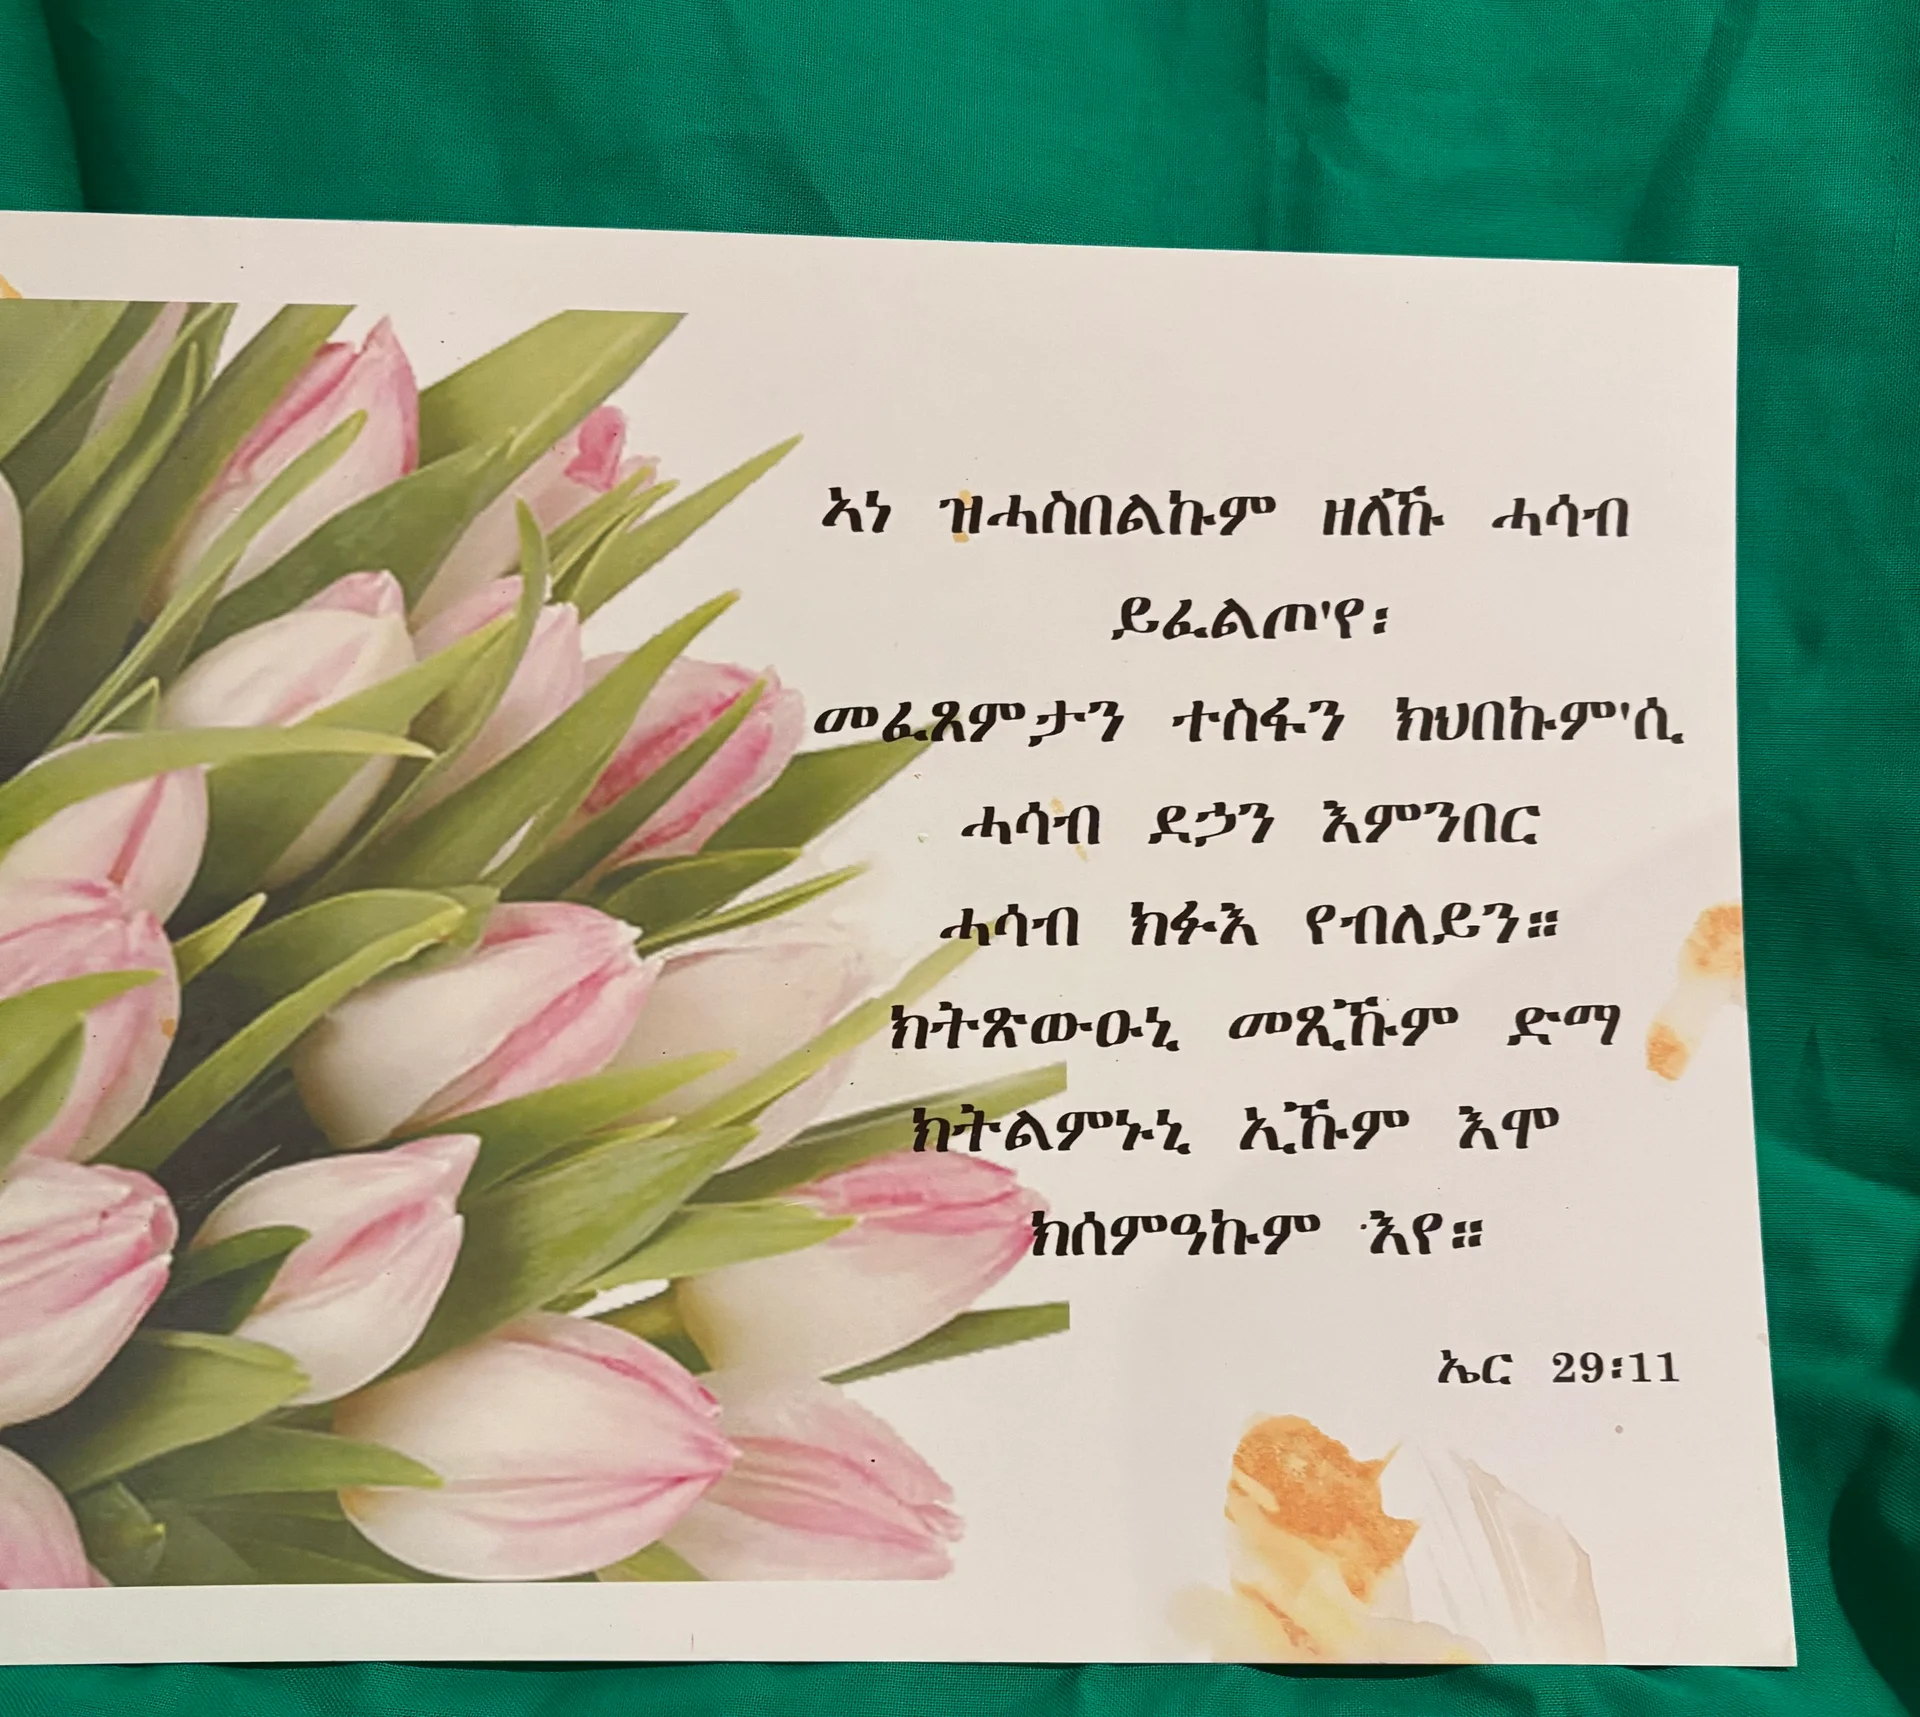 ኣነ ዝሓስበልኩም ዘለኹ ሓሳብ
ይፈልጦ'የ፡
መፈጸምታን ተስፋን ክህበኩም'ሲ
ሓሳብ ደኃን እምንበር
ሓሳብ ክፉእ የብለይን።
ክትጽውዑኒ መጺኹም ድማ
ክትልምኑኒ ኢኹም እሞ
ክሰምዓኩም እየ።
ኤር 29፡11